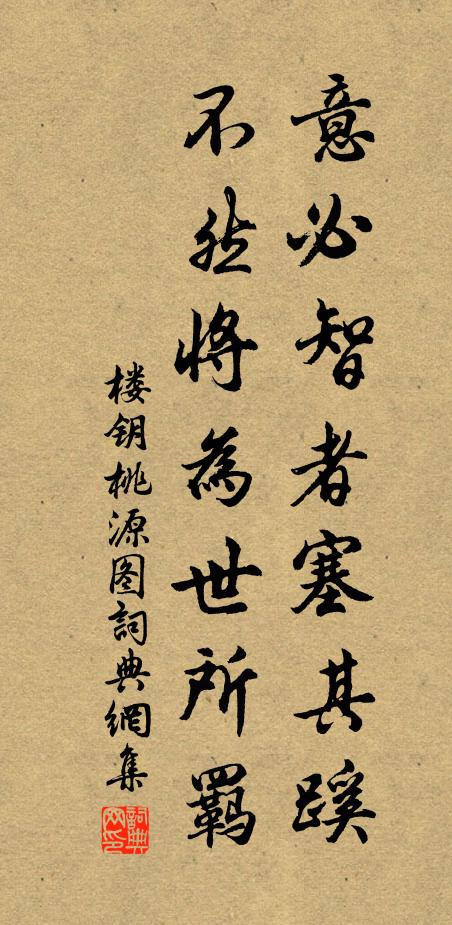 意必智者塞其蹊
不然将為世所羈
楼钥桃源图詞典網集
詞典網印